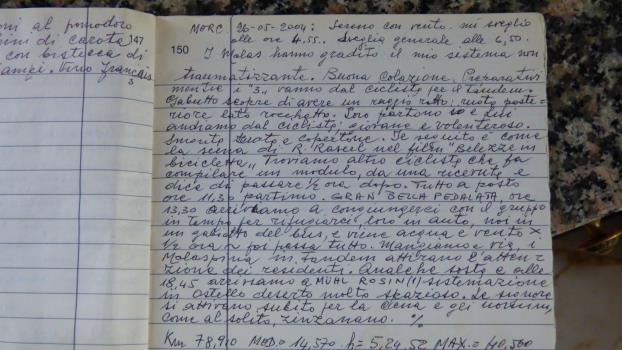 oni al pomodoro
ini di carota 147
con bistecca di
ampi. Vino francais
3
150
MERC. 26-05-2004: Sereno con vento. mi sveglio
alle ore 4.55. Sveglia generale alle 6,50.
I Molas hanno gradito il mio sistema non
traumatizzante. Buona colazione. Preparativi
mentre i "3" vanno dal ciclista per il tandem.
Gabutto scopre di avere un raggio rotto; ruota poste=
riore lato rocchetto. Loro partono e noi
andiamo dal ciclista: giovane e volenteroso.
Smonta ruota e copertone. Il seguito è come
la scena di R. Rascel nel film "Belezze in
bicicletta,, Troviamo altro ciclista che fa
compilare un modulo, da una ricevuta e
dice di passare ½ ora dopo. Tutto a posto
ore 11,30 partimo. GRAN BELLA PEDALATA, ore
13,30 arriviamo a congiungerci con il gruppo
in tempo per rifugiarci, loro in auto, noi in
un gabiotto del bus, e viene acqua e vento X
½ ora e poi passa tutto. Mangiamo e via, i
Molaspina in Tandem attirano l'atten=
zione dei residenti. Qualche sosta e alle
18,45 arriviamo a MÜHL ROSIN(1) sistemazione
in Ostello deserto molto spazioso. Le signore
si attivano subito per la cena e gli uomini,
come al solito, zinzanano. %
Km 78,910 MED.= 14,570 h= 5,24,52 MAX.= 40,500